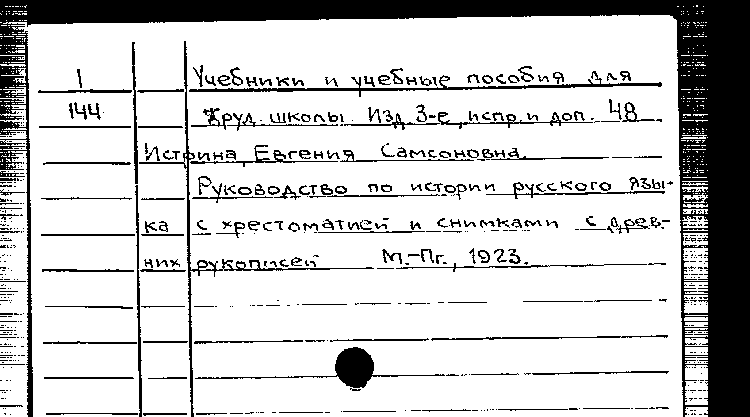 I Учебники и учебные пособия для
144 труд. школы. Изд. 3-е, испр. и доп. 48
Истрина, Евгения Самсоновна.
Руководство по истории русского язы-
ка с хрестоматией и снимками с древ-
них рукописей М.-Пг., 1923.